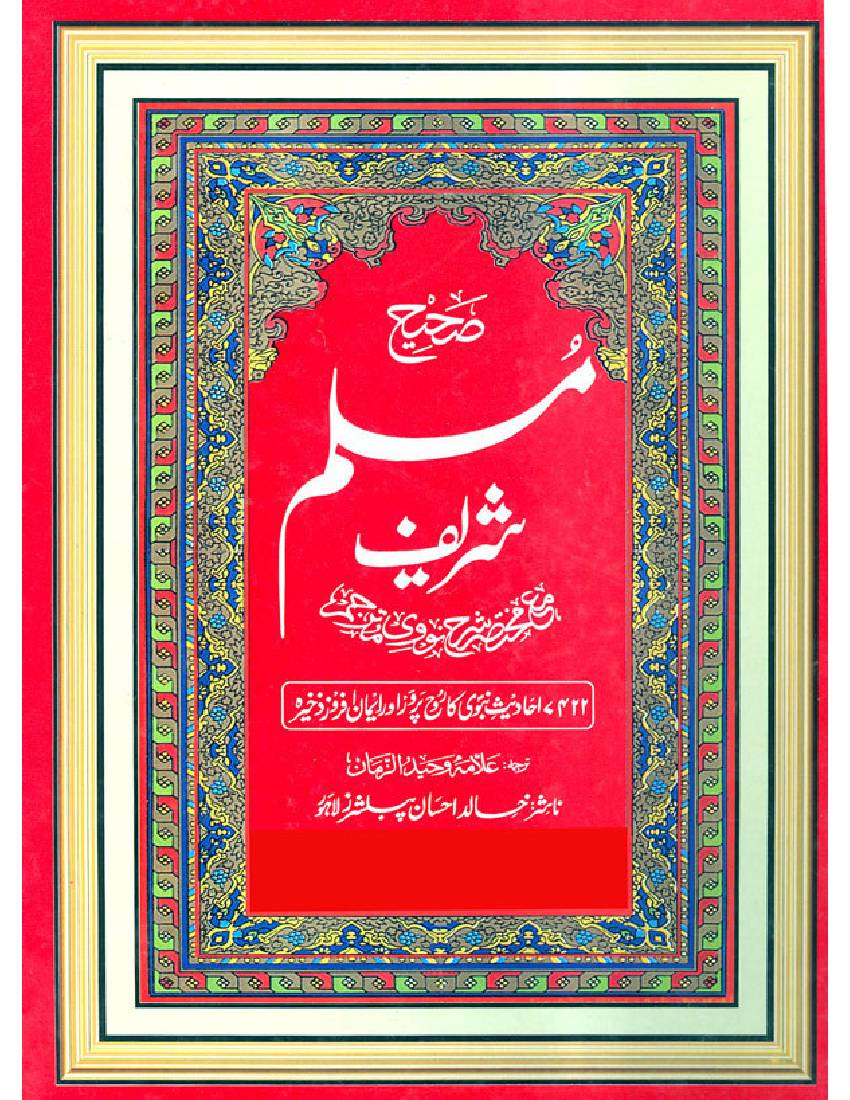 صحیح
مُسلم
شریف
مع مختصر شرح نووی مترجم
۷۴۲۲ احادیثِ نبویؐ کا روح پرور اور ایمان افروز ذخیرہ
ترجمہ: علامہ وحید الزمان
ناشر: خالد احسان پبلشرز لاہور